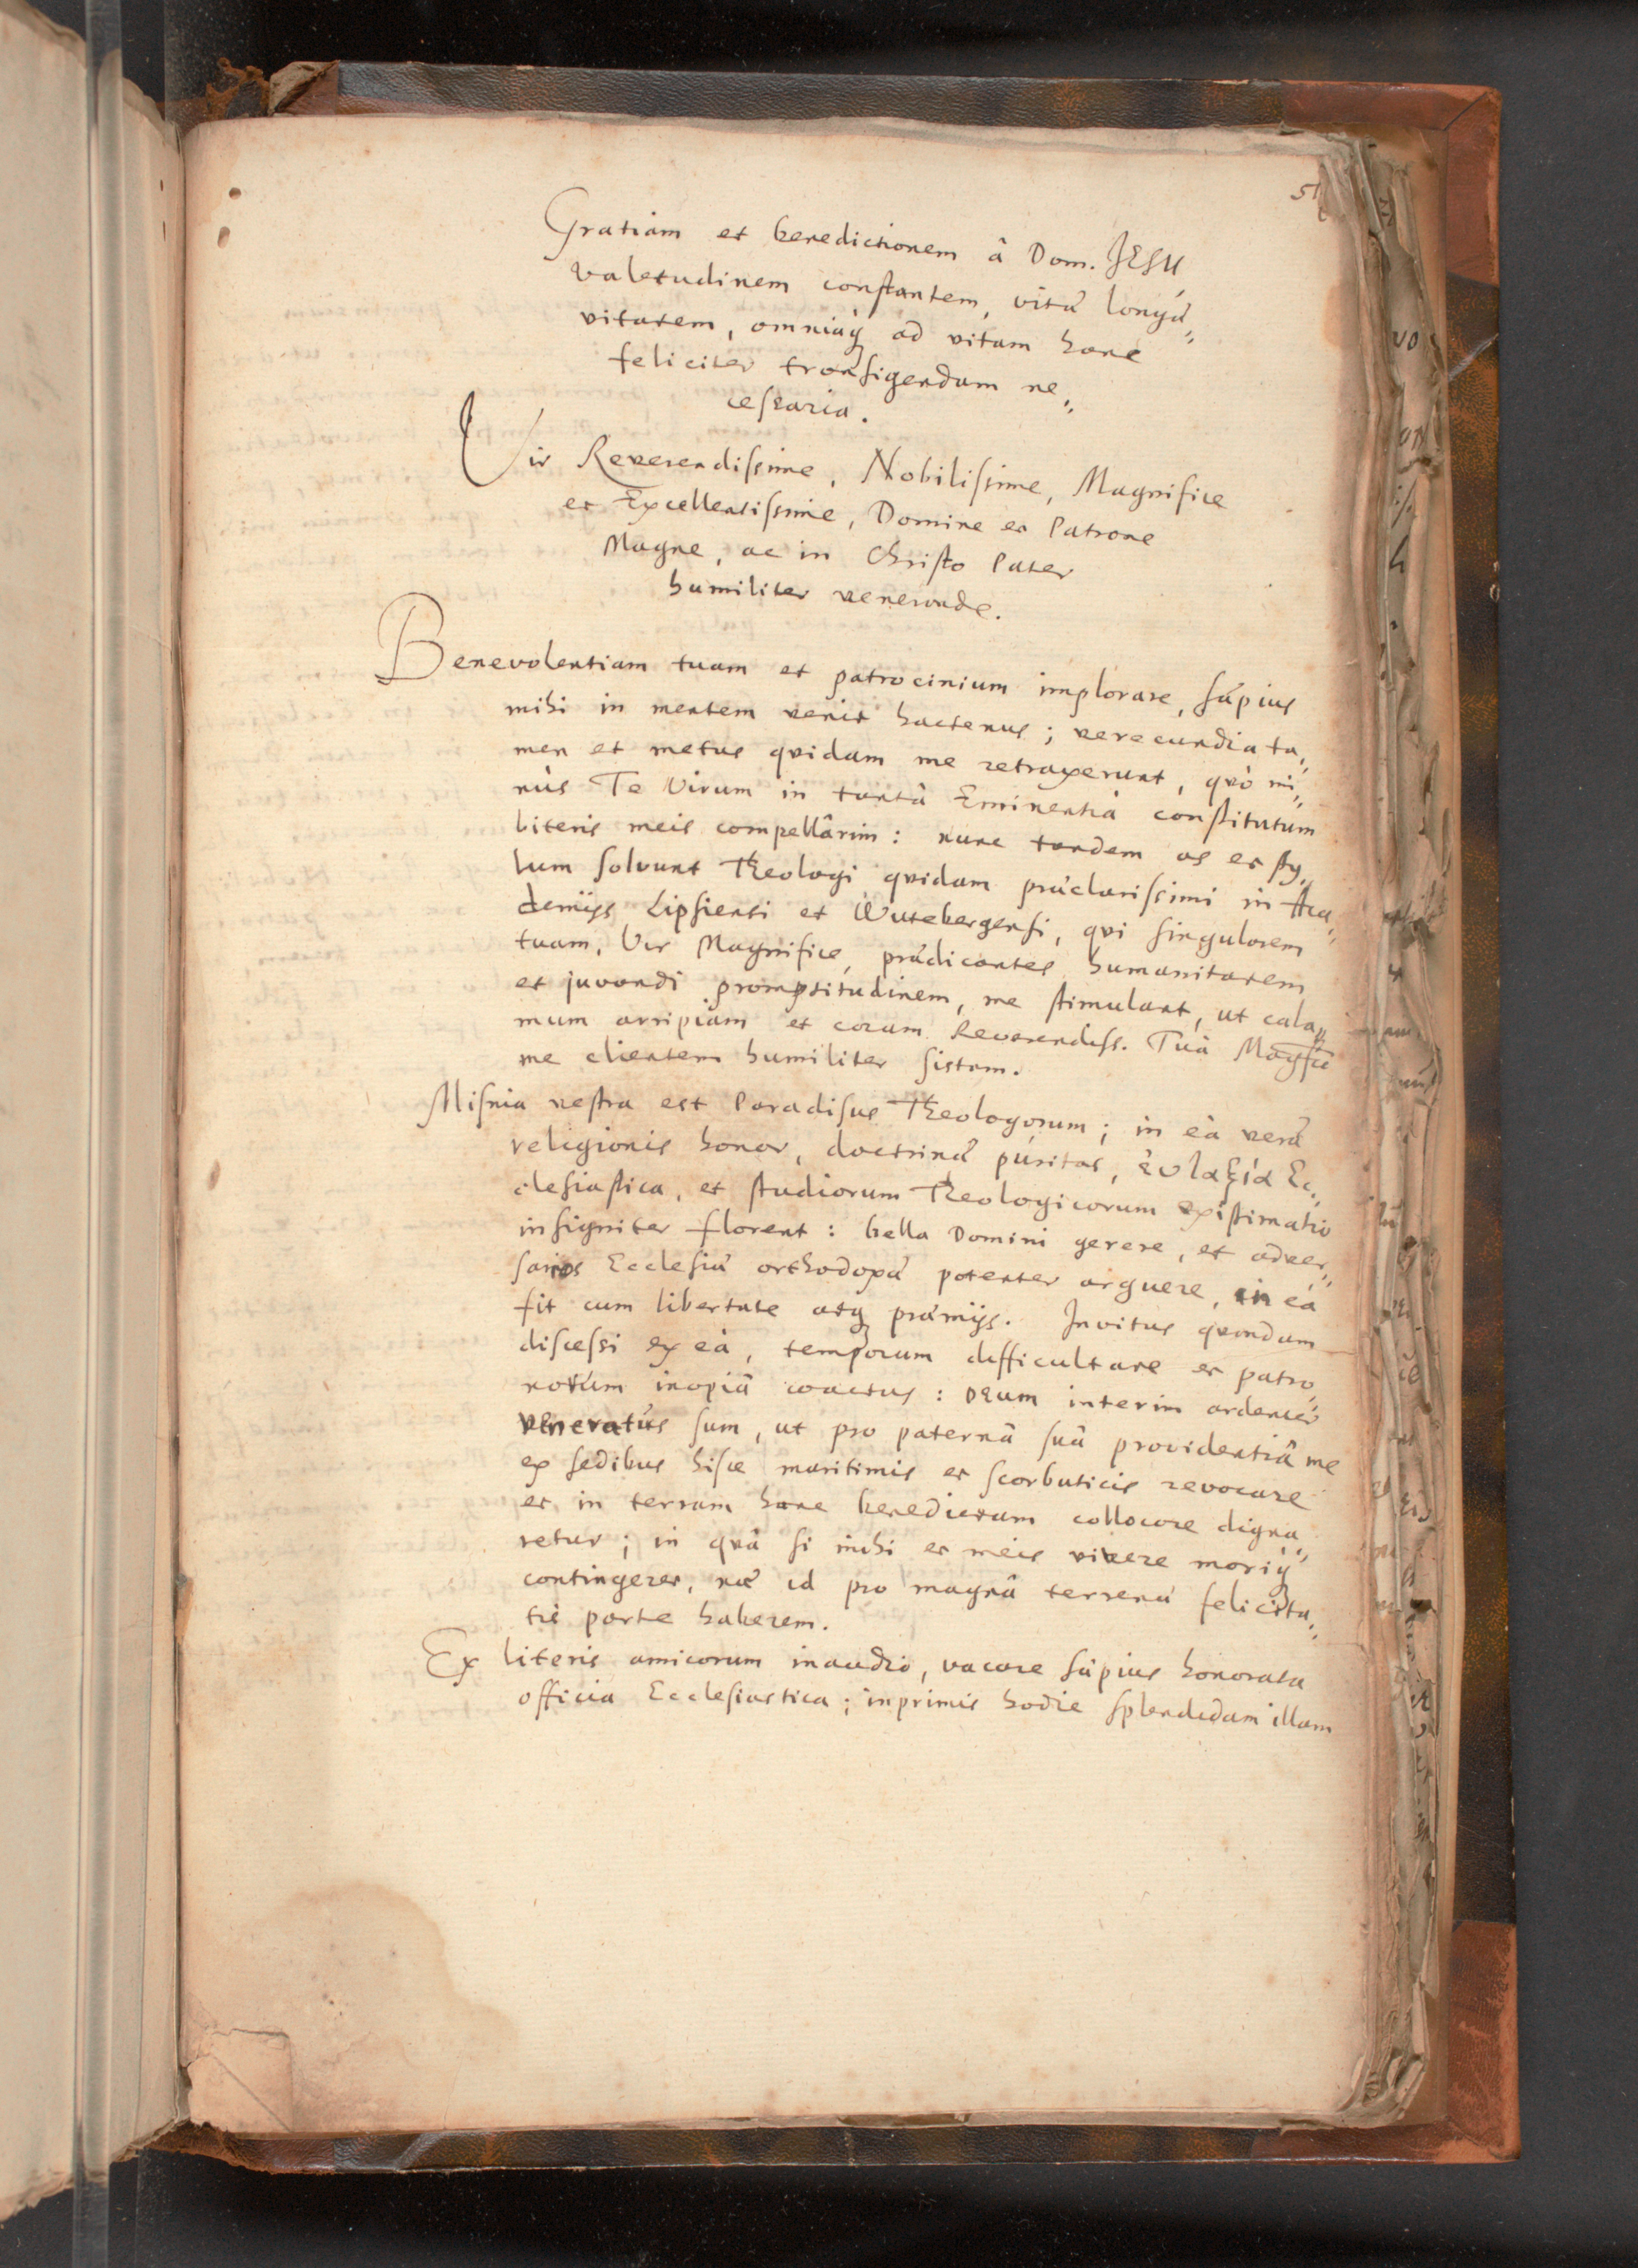 51
Gratiam et benedictionem â Dom. JESU
valetudinem constantem, vitæ longæ=
vitatem, omniaq; ad vitam hanc
feliciter transigendam ne=
cessaria.
Vir Reverendissime, Nobilissime, Magnifice
et Excellentissime, Domine et Patrone
Magne, ac in Christo Pater
humiliter venerande.
Benevolentiam tuam et patrocinium implorare, sæpius
mihi in mentem venit hactenus; verecundia ta=
men et metus qvidam me retraxerunt, qvò mi=
nùs Te Virum in tantâ Eminentiâ constitutum
literis meis compellârim: nunc tandem os et sty=
lum solvunt Theologi qvidam præclarissimi in Aca=
demijs Lipsiensi et Wittebergensi, qvi singularem
tuam, Vir Magnifice, prædicantes humanitatem
et juvandi promptitudinem, me stimulant, ut cala=
mum arripiam et coram Reverendiss. Tuâ Magfcê
me clientem humiliter sistam.
Misnia vestra est Paradisus Theologorum; in eâ veræ
religionis honor, doctrinæ puritas, ἐυλαξία Ec=
clesiastica, et studiorum Theologicorum existimatio
insigniter florent: bella Domini gerere, et adver=
sarios Ecclesiæ orthodoxæ potenter arguere, in eâ
fit cum libertate atq; præmijs. Invitus qvondam
discessi ex eâ, temporum difficultate et patro=
norum inopiâ coactus: DEUM interim ardenter
veneratus sum, ut pro paternâ suâ providentiâ me
ex sedibus hisce maritimis et scorbuticis revocare
et in terram hanc benedictam collocare digna=
retur; in qvâ si mihi et meis vivere moriq;
contingeret, næ id pro magnâ terrenæ felicita=
tis parte haberem.
Ex literis amicorum inaudio, vacare sæpius honorata
officia Ecclesiastica; inprimis hodie splendidam illam